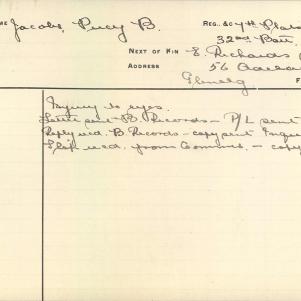 ME Jacobs, Percy B.
REG. & C-y H. Plat
32nd Batt.
NEXT OF KIN -E. Richards
ADDRESS 56
Glenelg F
Injury to eyes.
Letter sent B. Records - P/L sent
Reply recd. B Records - copy sent Enqu
Slip recd. from Comms. - copy